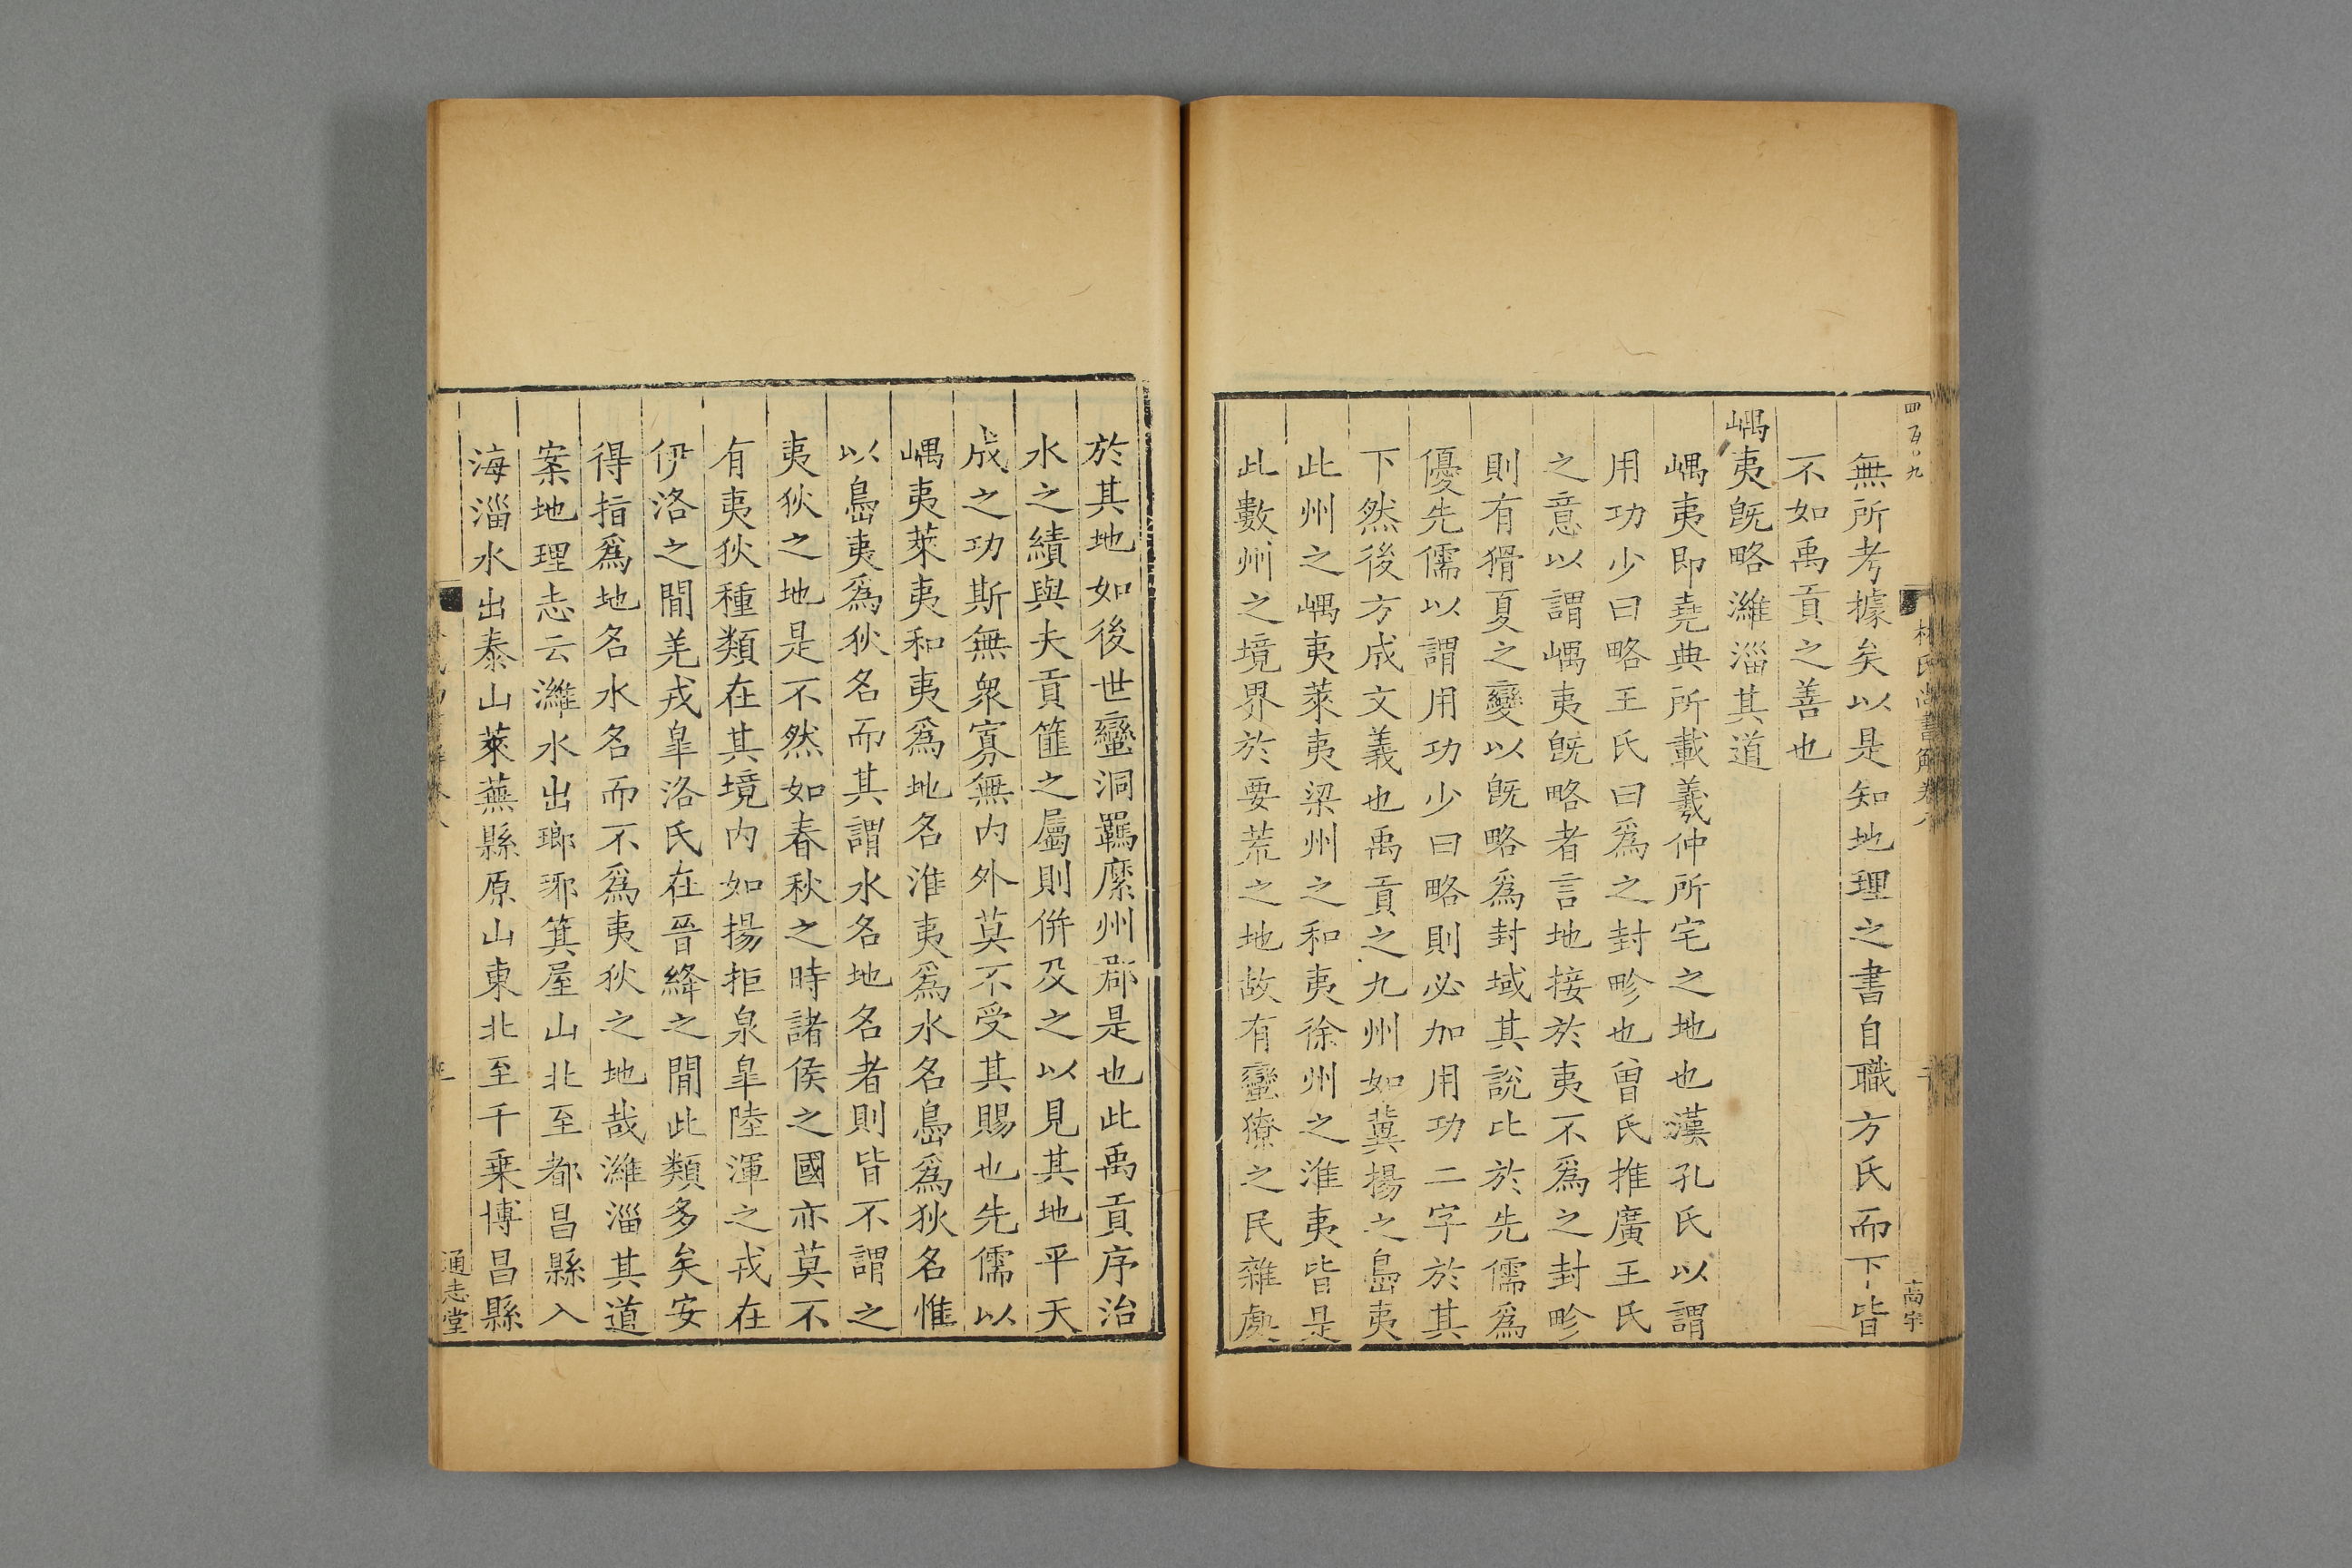 四百〇九
林氏尚書解卷八
無所考據矣以是知地理之書自職方氏而下皆
不如禹貢之善也
嵎夷既略濰淄其道
嵎夷即堯典所載羲仲所宅之地也漢孔氏以謂
用功少曰略王氏曰爲之封畛也曾氏推廣王氏
之意以謂嵎夷既略者言地接於夷不爲之封畛
則有猾夏之變以既略爲封域其說比於先儒爲
優先儒以謂用功少曰略則必加用功二字於其
下然後方成文義也禹貢之九州如冀揚之島夷
此州之嵎夷萊夷梁州之和夷徐州之淮夷皆是
此數州之境界於要荒之地故有蠻獠之民雜處
於其地如後世蠻洞羈縻州郡是也此禹貢序治
水之績與夫貢篚之屬則併及之以見其地平天
成之功斯無衆寡無內外莫不受其賜也先儒以
嵎夷萊夷和夷爲地名淮夷爲水名島爲狄名惟
以島夷爲狄名而其謂水名地名者則皆不謂之
夷狄之地是不然如春秋之時諸侯之國亦莫不
有夷狄種類在其境內如揚拒泉臯陸渾之戎在
伊洛之閒羌戎臯洛氏在晉絳之閒此類多矣安
得指爲地名水名而不爲夷狄之地哉濰淄其道
案地理志云濰水出瑯琊箕屋山北至都昌縣入
海淄水出泰山萊蕪縣原山東北至千乗博昌縣
通志堂